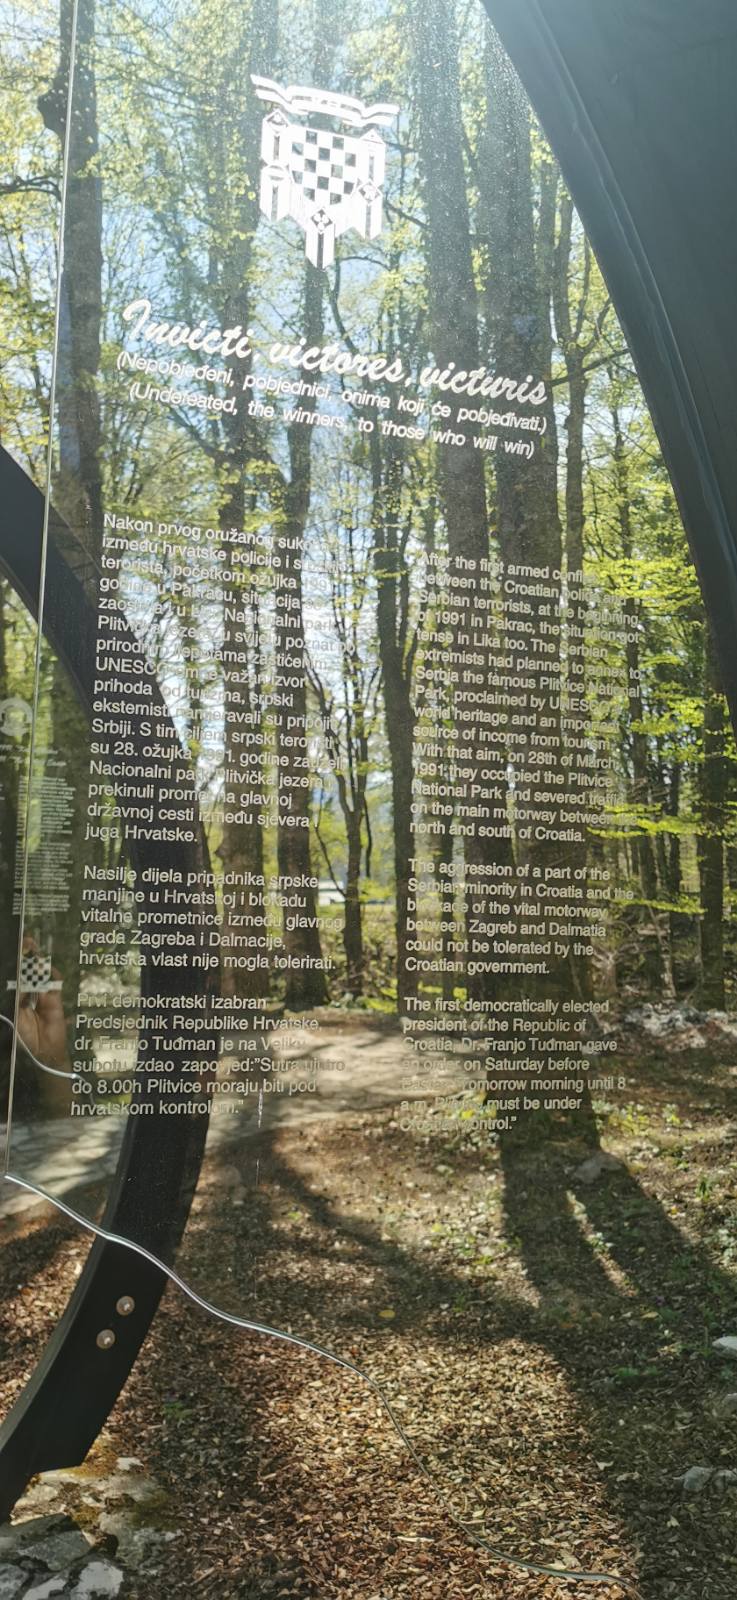 Invicti, victores, victuris
(Nepobjeđeni, pobjednici, onima koji će pobjeđivati.)
(Undefeated, the winners, to those who will win)
Nakon prvog oružanog
između hrvatske policije i
terorista, početkom ožujka
godine u Pakracu, situacija se
Nacionalni park
Plitvička jezera, u svijetu poznat po
prirodnim ljepotama zaštićenim
UNESCO-om je važan izvor
prihoda od turizma, srpski
eksternisti namjeravali su pripojiti
Srbiji. S tim ciljem srpski teroristi
su 28. ožujka 1991. godine zauzeli
Nacionalni park Plitvička jezera i
prekinuli promet na glavnoj
državnoj cesti između sjevera i
juga Hrvatske.
Nasilje dijela pripadnika srpske
manjine u Hrvatskoj i blokadu
vitalne prometnice između glavnog
grada Zagreba i Dalmacije,
hrvatska vlast nije mogla tolerirati.
Prvi demokratski izabran
Predsjednik Republike Hrvatske,
dr. Franjo Tuđman je na Veliku
subotu izdao zapovjed:"Sutra ujutro
do 8.00h Plitvice moraju biti pod
hrvatskom kontrolom."
After the first armed conflict
between the Croatian police and
Serbian terrorists, at the beginning
of 1991 in Pakrac, the situation got
tense in Lika too. The Serbian
extremists had planned to annex to
Serbia the famous Plitvice National
Park, proclaimed by UNESCO
world heritage and an important
source of income from tourism.
With that aim, on 28th of March
1991 they occupied the Plitvice
National Park and severed traffic
on the main motorway between the
north and south of Croatia.
The aggression of a part of the
Serbian minority in Croatia and the
blockade of the vital motorway
between Zagreb and Dalmatia
could not be tolerated by the
Croatian government.
The first democratically elected
president of the Republic of
Croatia, Dr. Franjo Tuđman gave
an order on Saturday before
Easter: "Tomorrow morning until 8
a.m. Plitvice must be under
Croatian control."